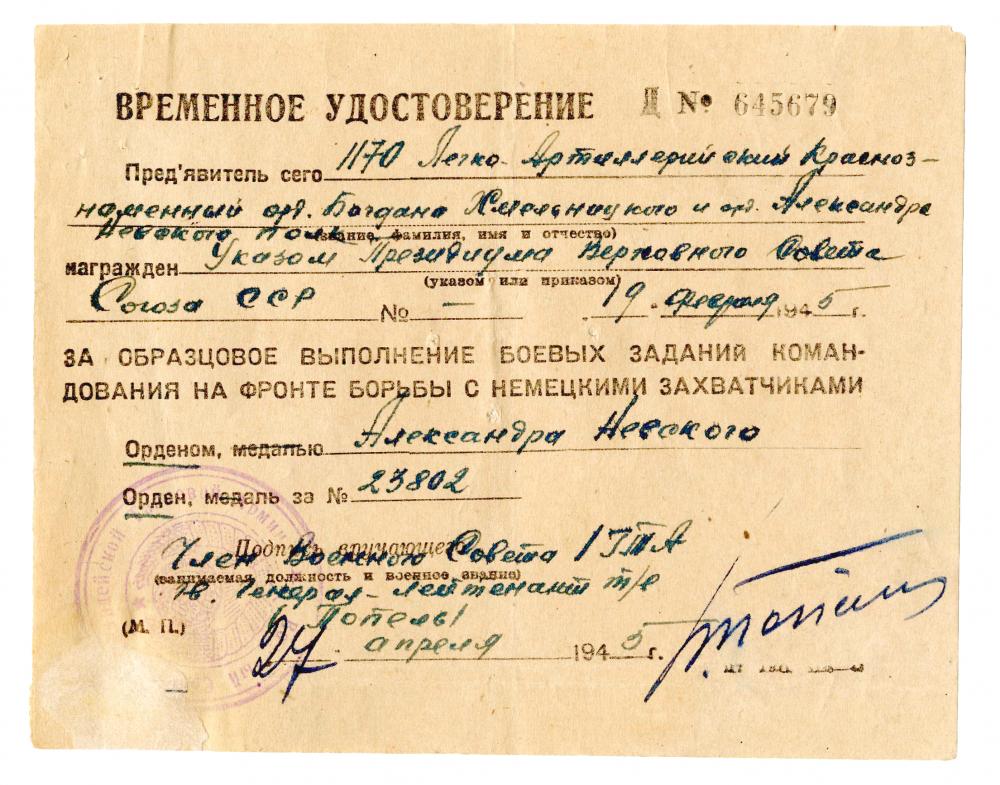 ВРЕМЕННОЕ УДОСТОВЕРЕНИЕ Д № 645679
Пред'явитель сего 1170 Легко-Артиллерийский Красноз-
наменный орд. Богдана Хмельницкого и орд. Александра
Невского полк
(звание, фамилия, имя и отчество)
награжден Указом Президиума Верховного Совета
(указом или приказом)
Союза ССР № — 19 февраля 1945 г.
ЗА ОБРАЗЦОВОЕ ВЫПОЛНЕНИЕ БОЕВЫХ ЗАДАНИЙ КОМАН-
ДОВАНИЯ НА ФРОНТЕ БОРЬБЫ С НЕМЕЦКИМИ ЗАХВАТЧИКАМИ
Орденом, медалью Александра Невского
Орден, медаль за № 23802
Подпись вручающего
Член Военного Совета 1 ГТА
(занимаемая должность и военное звание)
Генерал-лейтенант т/в
(М. П.) /Попель/
27 апреля 1945 г.